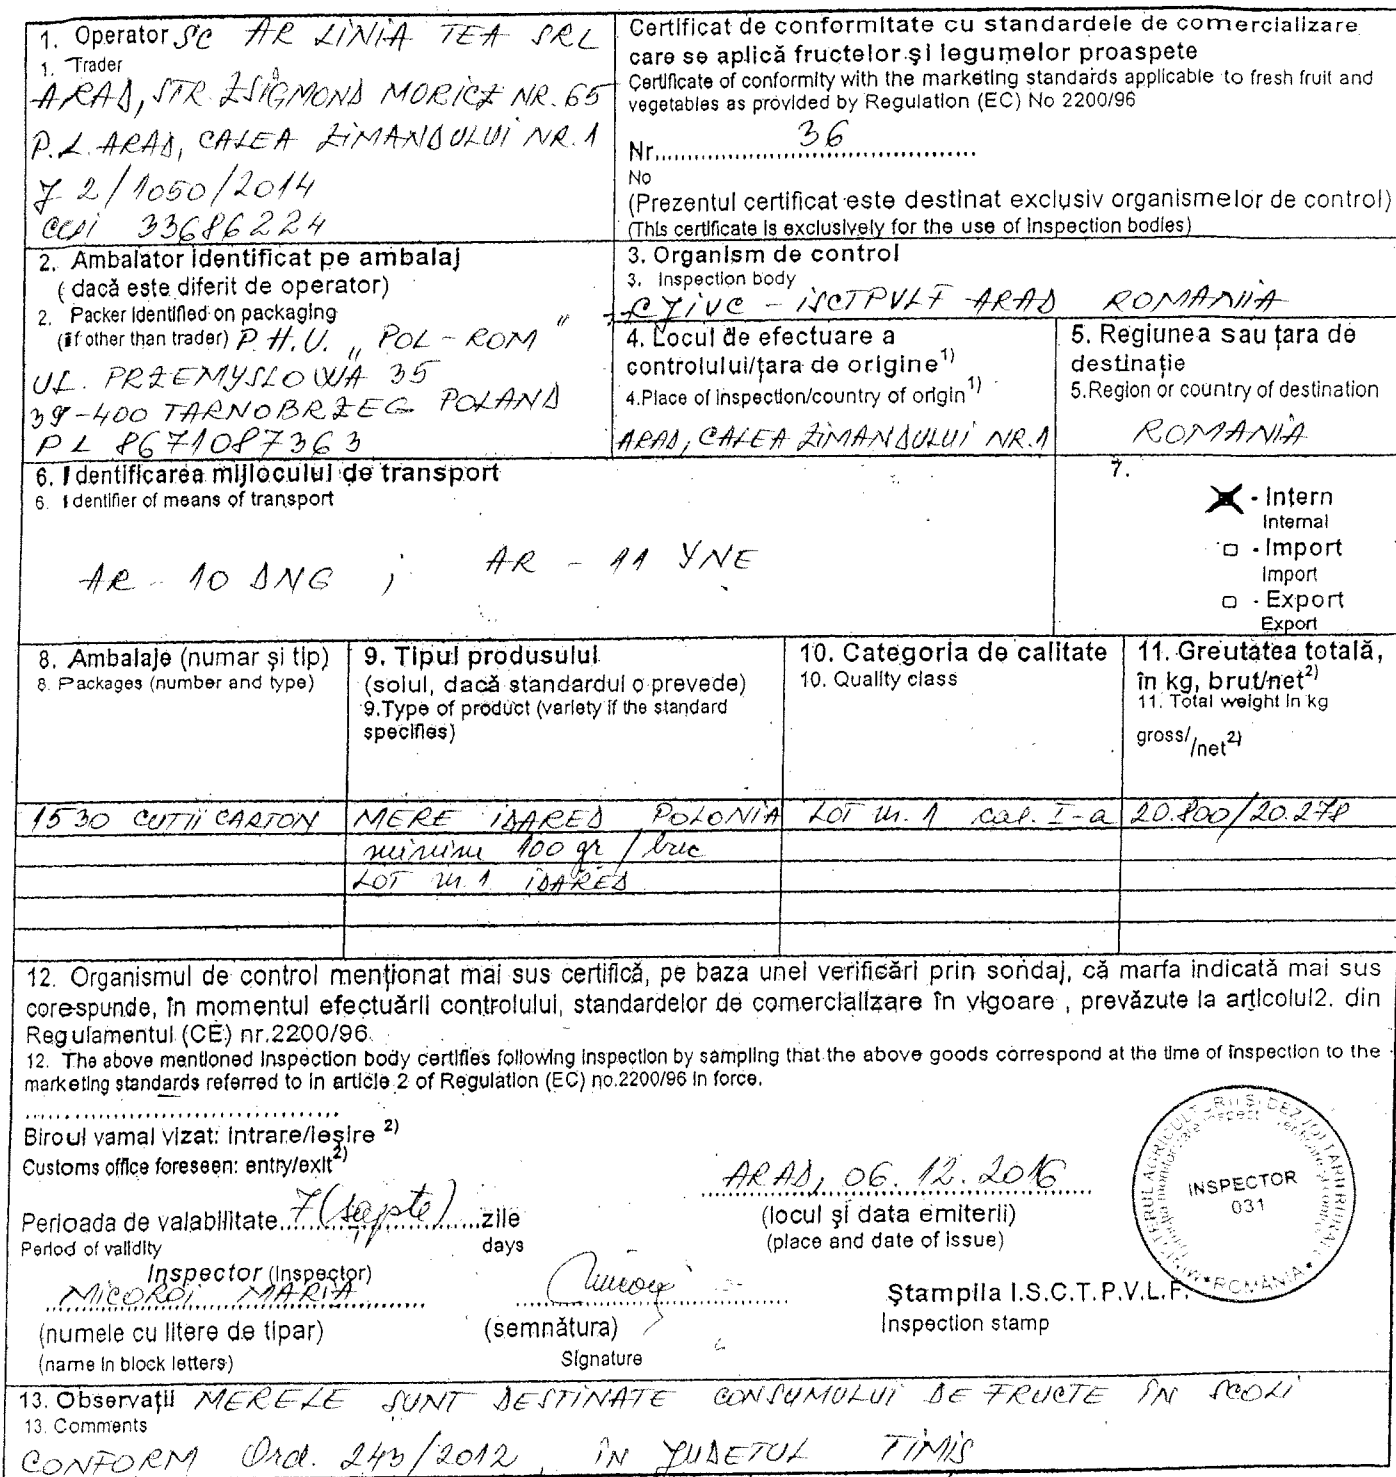 1. Operator SC AR LINIA TEA SRL
1. Trader
ARAD, STR. ZSIGMOND MORICZ NR. 65
P.L. ARAD, CALEA ZIMANDULUI NR. 1
J 2/1050/2014
CUI 33686224
Certificat de conformitate cu standardele de comercializare
care se aplică fructelor şi legumelor proaspete
Certificate of conformity with the marketing standards applicable to fresh fruit and
vegetables as provided by Regulation (EC) No 2200/96
Nr. 36
No
(Prezentul certificat este destinat exclusiv organismelor de control)
(This certificate is exclusively for the use of inspection bodies)
2. Ambalator identificat pe ambalaj
(dacă este diferit de operator)
2. Packer identified on packaging
(if other than trader) P.H.U. „POL-ROM"
UL. PRZEMYSLOWA 35
39-400 TARNOBRZEG POLAND
PL 8671087363
3. Organism de control
3. Inspection body
CJIVC - ISCTPVLF ARAD ROMANIA
4. Locul de efectuare a
controlului/ţara de origine1)
4.Place of inspection/country of origin1)
ARAD, CALEA ZIMANDULUI NR.1
5. Regiunea sau ţara de
destinaţie
5.Region or country of destination
ROMANIA
6. Identificarea mijlocului de transport
6. Identifier of means of transport
AR - 10 DNG ; AR - 11 YNE
7.
- Intern
Internal
- Import
Import
- Export
Export
8. Ambalaje (numar şi tip)
8. Packages (number and type)
9. Tipul produsului
(soiul, dacă standardul o prevede)
9.Type of product (variety if the standard
specifies)
10. Categoria de calitate
10. Quality class
11. Greutatea totală,
în kg, brut/net2)
11. Total weight in kg
gross/ /net2)
1530 CUTII CARTON MERE IDARED POLONIA LOT nr. 1 cal. I-a 20.800/20.278
minim 100 gr / buc
LOT nr. 1 IDARED
12. Organismul de control menţionat mai sus certifică, pe baza unei verificări prin sondaj, că marfa indicată mai sus
corespunde, în momentul efectuării controlului, standardelor de comercializare în vigoare , prevăzute la articolul2. din
Regulamentul (CE) nr.2200/96.
12. The above mentioned inspection body certifies following inspection by sampling that the above goods correspond at the time of inspection to the
marketing standards referred to in article 2 of Regulation (EC) no.2200/96 in force.
Biroul vamal vizat: intrare/ieşire 2)
Customs office foreseen: entry/exit2)
Perioada de valabilitate 7 (sapte) zile
Period of validity days
ARAD, 06.12.2016
(locul şi data emiterii)
(place and date of issue)
INSPECTOR
031
ROMÂNIA
Inspector (Inspector)
MICOROI MARIA
(numele cu litere de tipar)
(name in block letters)
(semnătura)
Signature
Ştampila I.S.C.T.P.V.L.F.
Inspection stamp
13. Observaţii MERELE SUNT DESTINATE CONSUMULUI DE FRUCTE IN SCOLI
13. Comments
CONFORM Ord. 243/2012, IN JUDETUL TIMIS